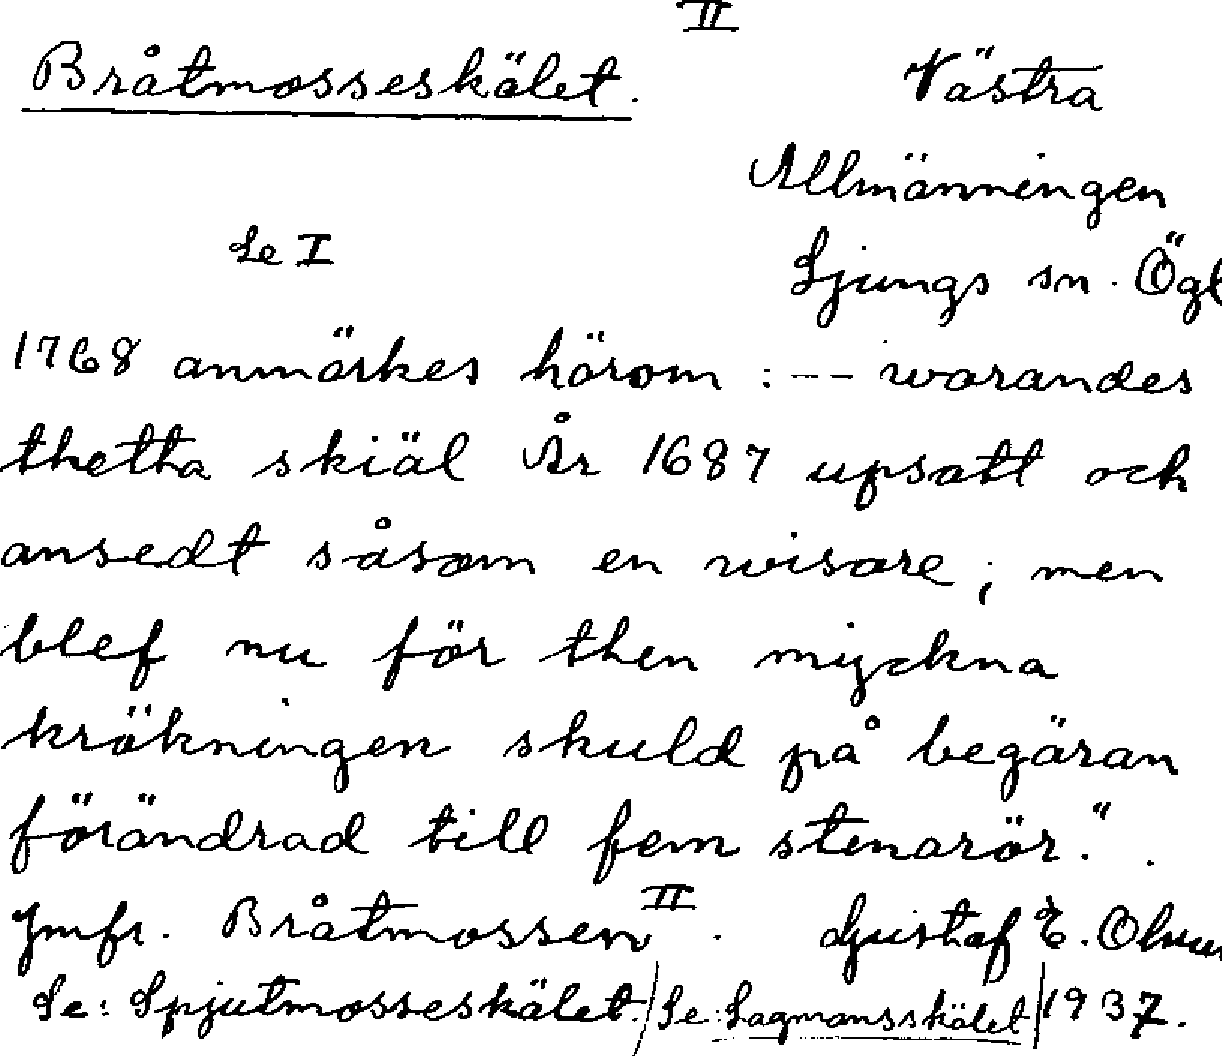 II
Bråtmosseskälet. Västra
Allmänningen
Se I
Ljungs sn. Ögl
1768 anmärkes härom : -- warandes
thetta skiäl År 1687 upsatt och
ansedt såsom en wisare; men
blef nu för then myckna
krökningen skuld på begäran
förändrad till fem stenarör.".
Jmfr. Bråtmossen II. Gustaf E.
Se: Spjutmosseskälet./Se: Lagmansskälet/1937.